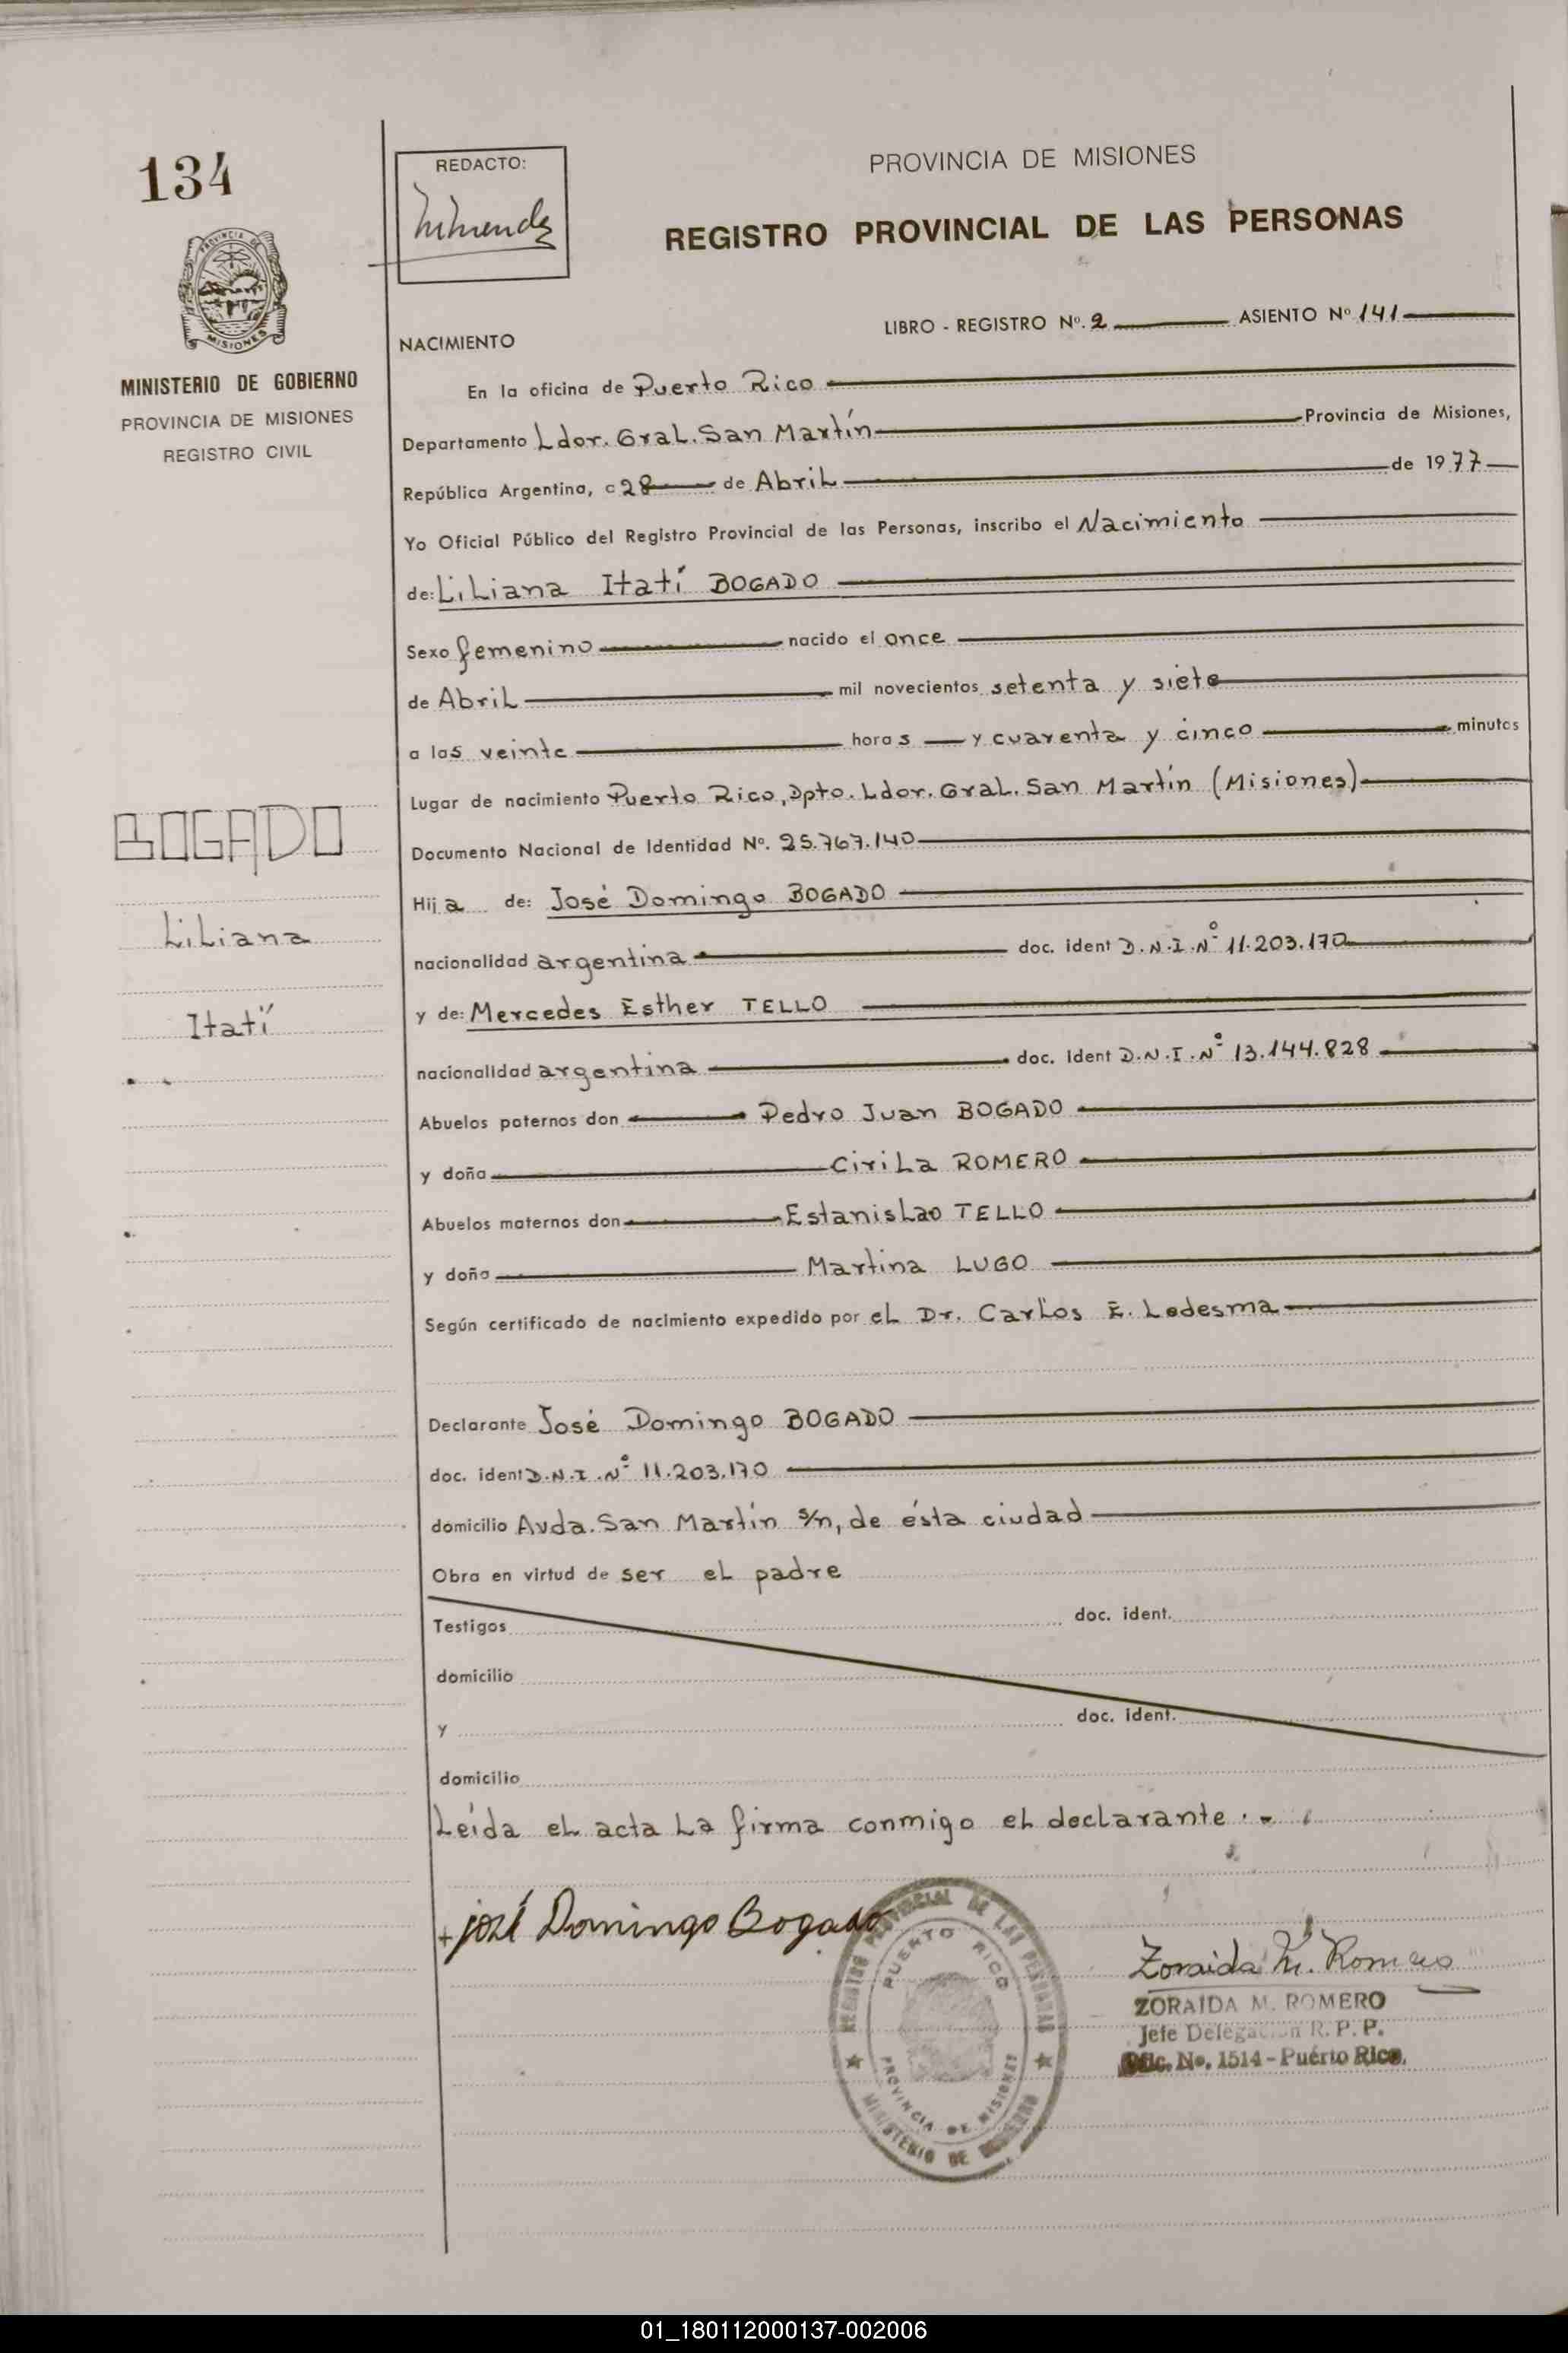 134
REDACTO:
PROVINCIA DE MISIONES
REGISTRO PROVINCIAL DE LAS PERSONAS
PROVINCIA DE
MISIONES
MINISTERIO DE GOBIERNO
PROVINCIA DE MISIONES
REGISTRO CIVIL
LIBRO - REGISTRO Nº. 2 ASIENTO Nº 141
NACIMIENTO
En la oficina de Puerto Rico
Departamento Ldor. Gral. San Martín Provincia de Misiones,
República Argentina, a 28 de Abril de 1977
Yo Oficial Público del Registro Provincial de las Personas, inscribo el Nacimiento
de: Liliana Itatí BOGADO
Sexo femenino nacido el once
de Abril mil novecientos setenta y siete
a las veinte horas y cuarenta y cinco minutos
Lugar de nacimiento Puerto Rico, Dpto. Ldor. Gral. San Martín (Misiones)
Documento Nacional de Identidad Nº. 25.767.140
Hija de: José Domingo BOGADO
nacionalidad argentina doc. ident D.N.I.Nº 11.203.170
y de: Mercedes Esther TELLO
nacionalidad argentina doc. ident D.N.I.Nº 13.144.828
Abuelos paternos don Pedro Juan BOGADO
y doña Cirila ROMERO
Abuelos maternos don Estanislao TELLO
y doña Martina LUGO
Según certificado de nacimiento expedido por el Dr. Carlos E. Ledesma
Declarante José Domingo BOGADO
doc. ident D.N.I.Nº 11.203.170
domicilio Avda. San Martín s/n, de ésta ciudad
Obra en virtud de ser el padre
Testigos doc. ident.
domicilio
y doc. ident.
domicilio
Leída el acta la firma conmigo el declarante.-
BOGADO
Liliana
Itatí
+ José Domingo Bogado
REGISTRO PROVINCIAL DE LAS PERSONAS
PUERTO RICO
PROVINCIA DE MISIONES
MINISTERIO DE GOBIERNO
Zoraida M. Romero
ZORAIDA M. ROMERO
Jefe Delegación R. P. P.
Ofic. No. 1514 - Puerto Rico.
01_180112000137-002006